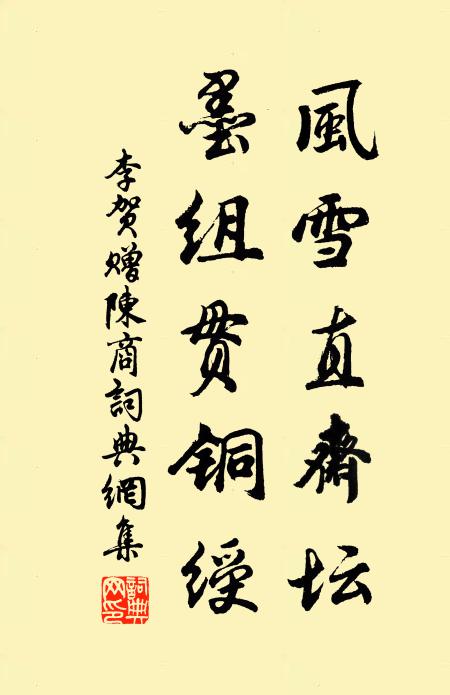 風雪直齋坛
墨组贯铜綬
李贺赠陳商詞典網集
詞典网印